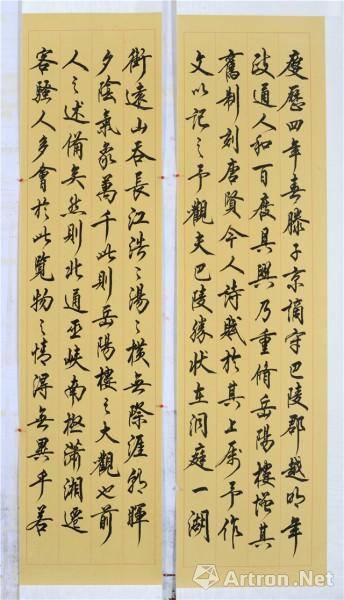 慶歷四年春滕子京謫守巴陵郡越明年
政通人和百廢具興乃重脩岳陽樓增其
舊制刻唐賢今人詩賦於其上屬予作
文以記之予觀夫巴陵勝狀在洞庭一湖
銜遠山吞長江浩〻湯〻橫無際涯朝暉
夕陰氣象萬千此則岳陽樓之大觀也前
人之述備矣然則北通巫峽南極瀟湘遷
客騷人多會於此覽物之情得無異乎若
Artron.Net